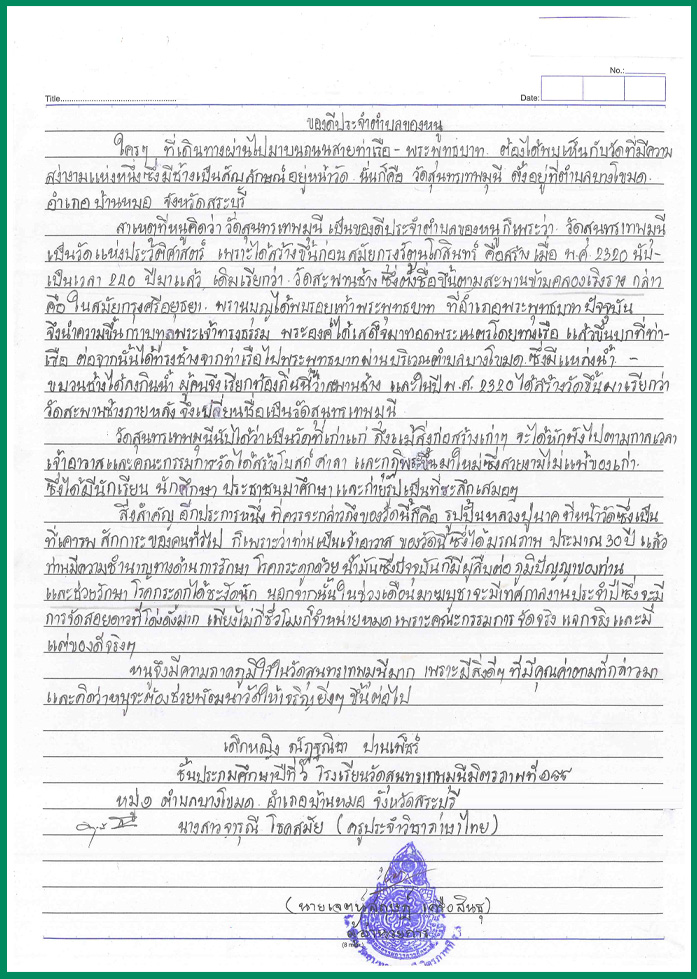 No.:
Title
Date:
ของดีประจำตำบลของหนู
ใครๆ ที่เดินทางผ่านไปมาบนถนนสายท่าเรือ - พระพุทธบาท ต้องได้พบเห็นกับวัดที่มีความ
สง่างามแห่งหนึ่งซึ่งมีช้างเป็นสัญลักษณ์อยู่หน้าวัด นั่นก็คือ วัดสุนทรเทพมุนี ตั้งอยู่ที่ตำบลบางโขมด
อำเภอบ้านหมอ จังหวัดสระบุรี
สาเหตุที่หนูคิดว่า วัดสุนทรเทพมุนี เป็นของดีประจำตำบลของหนูก็เพราะว่า วัดสุนทรเทพมุนี
เป็นวัดแห่งประวัติศาสตร์ เพราะได้สร้างขึ้นก่อนสมัยกรุงรัตนโกสินทร์ คือสร้างเมื่อ พ.ศ. 2320 นับ-
เป็นเวลา 240 ปีมาแล้ว เดิมเรียกว่า วัดสะพานช้าง ซึ่งตั้งชื่อขึ้นตามสะพานข้ามคลองเริงราง กล่าว
คือ ในสมัยกรุงศรีอยุธยา พรานบุญได้พบรอยเท้าพระพุทธบาท ที่อำเภอพระพุทธบาทปัจจุบัน
จึงนำความขึ้นกราบทูลพระเจ้าทรงธรรม พระองค์ได้เสด็จมาทอดพระเนตรโดยทางเรือ แล้วขึ้นบกที่ท่า-
เรือ ต่อจากนั้นได้ทรงช้างจากท่าเรือไปพระพุทธบาทผ่านบริเวณตำบลบางโขมด ซึ่งมีแหล่งน้ำ -
ขบวนช้างได้ลงกินน้ำ ผู้คนจึงเรียกท้องถิ่นนี้ว่าสะพานช้าง และในปี พ.ศ. 2320 ได้สร้างวัดขึ้นมาเรียกว่า
วัดสะพานช้างภายหลัง จึงเปลี่ยนชื่อเป็นวัดสุนทรเทพมุนี
วัดสุนทรเทพมุนีนับได้ว่าเป็นวัดที่เก่าแก่ ถึงแม้สิ่งก่อสร้างเก่าๆ จะได้หักพังไปตามกาลเวลา
เจ้าอาวาสและคณะกรรมการวัดได้สร้างโบสถ์ ศาลา และกุฏิพระขึ้นมาใหม่ซึ่งสวยงามไม่แพ้ของเก่า
ซึ่งได้มีนักเรียน นักศึกษา ประชาชนมาศึกษา และถ่ายรูปเป็นที่ระลึกเสมอๆ
สิ่งสำคัญ อีกประการหนึ่ง ที่ควรจะกล่าวถึงของวัดนี้ก็คือ รูปปั้นหลวงปู่นาค ที่หน้าวัดซึ่งเป็น
ที่เคารพ สักการะของคนทั่วไป ก็เพราะว่าท่านเป็นเจ้าอาวาส ของวัดนี้ซึ่งได้มรณภาพ ประมาณ 30 ปี แล้ว
ท่านมีความชำนาญทางด้านการรักษา โรคกระดูกด้วย น้ำมันซึ่งปัจจุบันก็มีผู้สืบต่อ ภูมิปัญญาของท่าน
และช่วยรักษา โรคกระดูกได้ชะงัดนัก นอกจากนั้นในช่วงเดือนมาฆบูชาจะมีเทศกาลงานประจำปีซึ่งจะมี
การจัดสอยดาวที่โด่งดังมาก เพียงไม่กี่ชั่วโมงก็จำหน่ายหมด เพราะคณะกรรมการ จัดจริง แจกจริง และมี
แต่ของดีจริงๆ
หนูจึงมีความภาคภูมิใจในวัดสุนทรเทพมุนีมาก เพราะมีสิ่งดีๆ ที่มีคุณค่าตามที่กล่าวมา
และคิดว่าหนูจะต้องช่วยพัฒนาวัดให้เจริญยิ่งๆ ขึ้นต่อไป
เด็กหญิง ณัฏฐณิชา ปานเพ็ชร์
ชั้นประถมศึกษาปีที่ ๖ โรงเรียนวัดสุนทรเทพมุนีมิตรภาพที่
หมู่ ๑ ตำบลบางโขมด อำเภอบ้านหมอ จังหวัดสระบุรี
นางสาวจารุณี โชคสมัย (ครูประจำวิชาภาษาไทย)
ผู้อำนวยการ